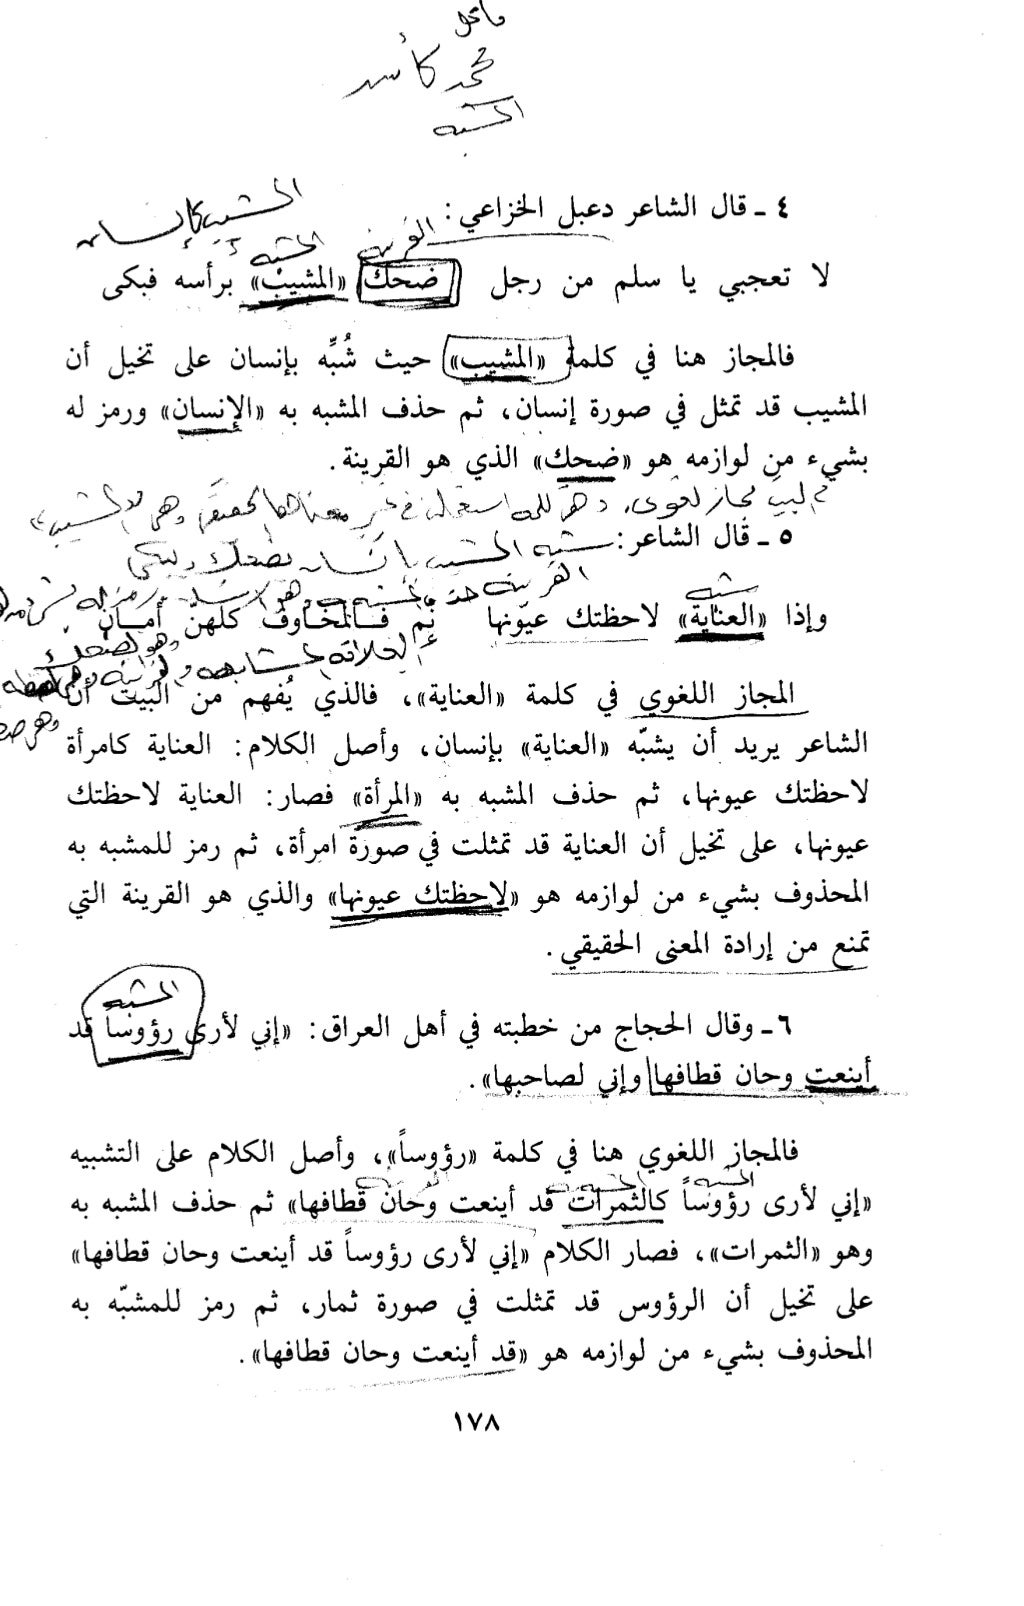 محمد كأسد
المشبه
المشيب كإنسان
٤ ـ قال الشاعر دعبل الخزاعي:
القرينة
المشبه
لا تعجبي يا سلم من رجل ضحك «المشيب» برأسه فبكى
فالمجاز هنا في كلمة «المشيب» حيث شُبِّه بإنسان على تخيل أن
المشيب قد تمثل في صورة إنسان، ثم حذف المشبه به «الإنسان» ورمز له
بشيء من لوازمه هو «ضحك» الذي هو القرينة.
مجاز لغوي في غير معناها الحقيقي وهي «المشيب»
٥ ـ قال الشاعر:
شبه المشيب بإنسان يضحك ويبكي
القرينة
وإذا «العناية» لاحظتك عيونها نم فالمخاوف كلهنّ أمان
وهو ضحك
العلاقة المشابهة
المجاز اللغوي في كلمة «العناية»، فالذي يُفهم من البيت أن
الشاعر يريد أن يشبّه «العناية» بإنسان، وأصل الكلام: العناية كامرأة
لاحظتك عيونها، ثم حذف المشبه به «المرأة» فصار: العناية لاحظتك
عيونها، على تخيل أن العناية قد تمثلت في صورة امرأة، ثم رمز للمشبه به
المحذوف بشيء من لوازمه هو «لاحظتك عيونها» والذي هو القرينة التي
تمنع من إرادة المعنى الحقيقي.
المشبه
٦ ـ وقال الحجاج من خطبته في أهل العراق: «إني لأرى رؤوساً قد
أينعت وحان قطافها وإني لصاحبها».
فالمجاز اللغوي هنا في كلمة «رؤوساً»، وأصل الكلام على التشبيه
المشبه
«إني لأرى رؤوساً كالثمرات قد أينعت وحان قطافها» ثم حذف المشبه به
وهو «الثمرات»، فصار الكلام «إني لأرى رؤوساً قد أينعت وحان قطافها»
على تخيل أن الرؤوس قد تمثلت في صورة ثمار، ثم رمز للمشبّه به
المحذوف بشيء من لوازمه هو «قد أينعت وحان قطافها».
١٧٨